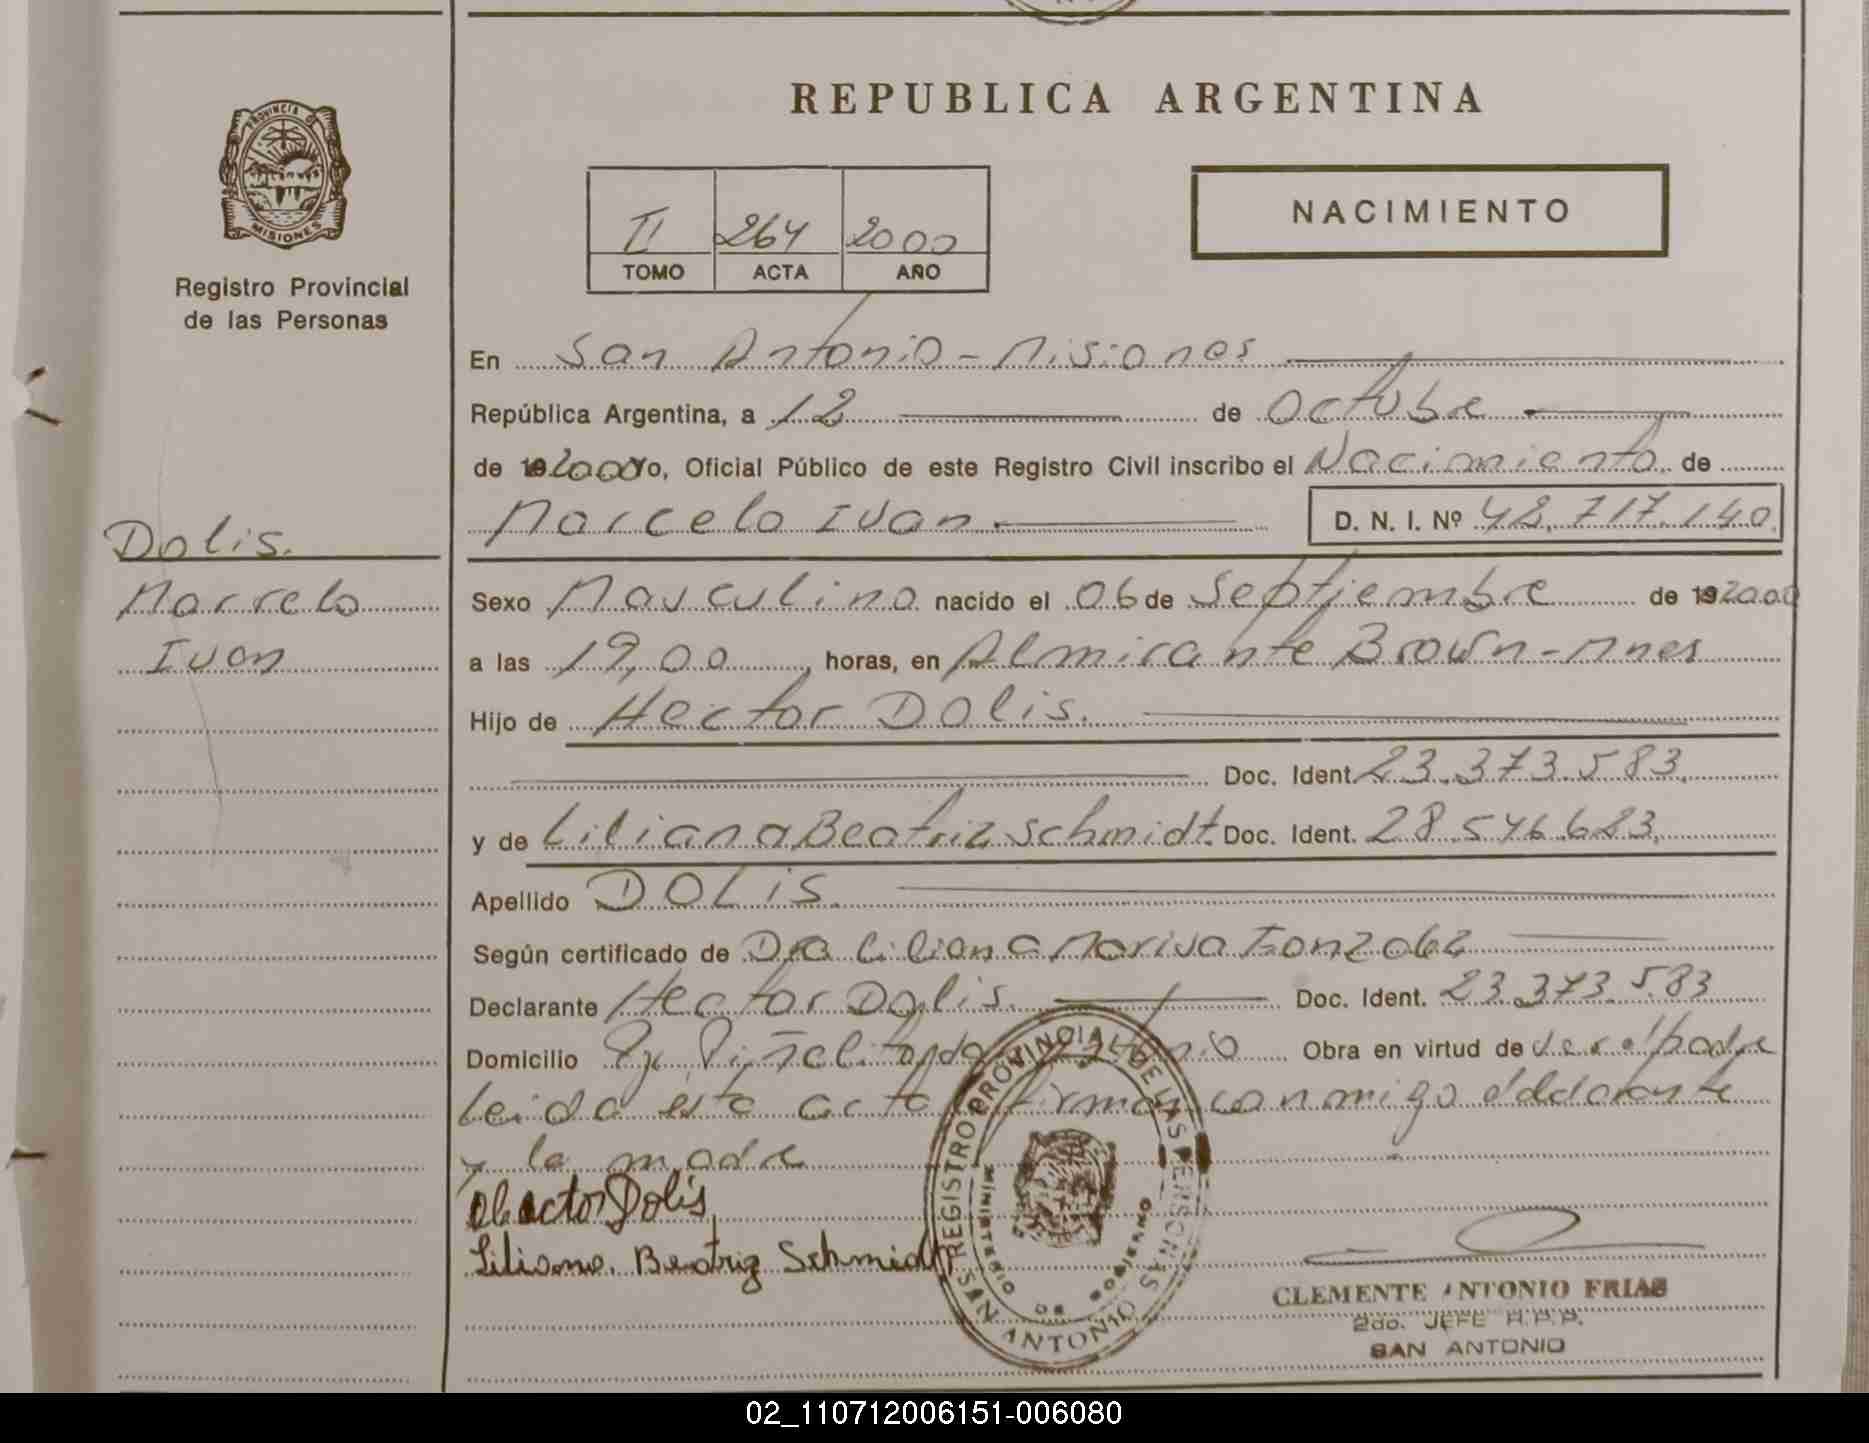 REPUBLICA ARGENTINA
PROVINCIA DE
MISIONES
Registro Provincial
de las Personas
II 264 2000
TOMO ACTA AÑO
NACIMIENTO
En San Antonio - Misiones
República Argentina, a 12 de Octubre
de 192000 Yo, Oficial Público de este Registro Civil inscribo el Nacimiento de
Marcelo Ivan D. N. I. Nº 42.717.140
Dolis.
Marcelo
Ivan
Sexo Masculino nacido el 06 de Septiembre de 192000
a las 19,00 horas, en Almirante Brown - Mnes
Hijo de Hector Dolis.
Doc. Ident. 23.373.583.
y de Liliana Beatriz Schmidt. Doc. Ident. 28.546.623.
Apellido DOLIS.
Según certificado de Dra Liliana Marisa Gonzalez
Declarante Hector Dolis. Doc. Ident. 23.373.583
Domicilio Antonio Obra en virtud de ser el padre
Leida esta acta firman conmigo declarante
y la madre
Hector Dolis
Liliana. Beatriz Schmidt
REGISTRO PROVINCIAL DE LAS PERSONAS
MINISTERIO DE GOBIERNO
SAN ANTONIO
CLEMENTE ANTONIO FRIAS
2do. JEFE R.P.P.
SAN ANTONIO
02_110712006151-006080